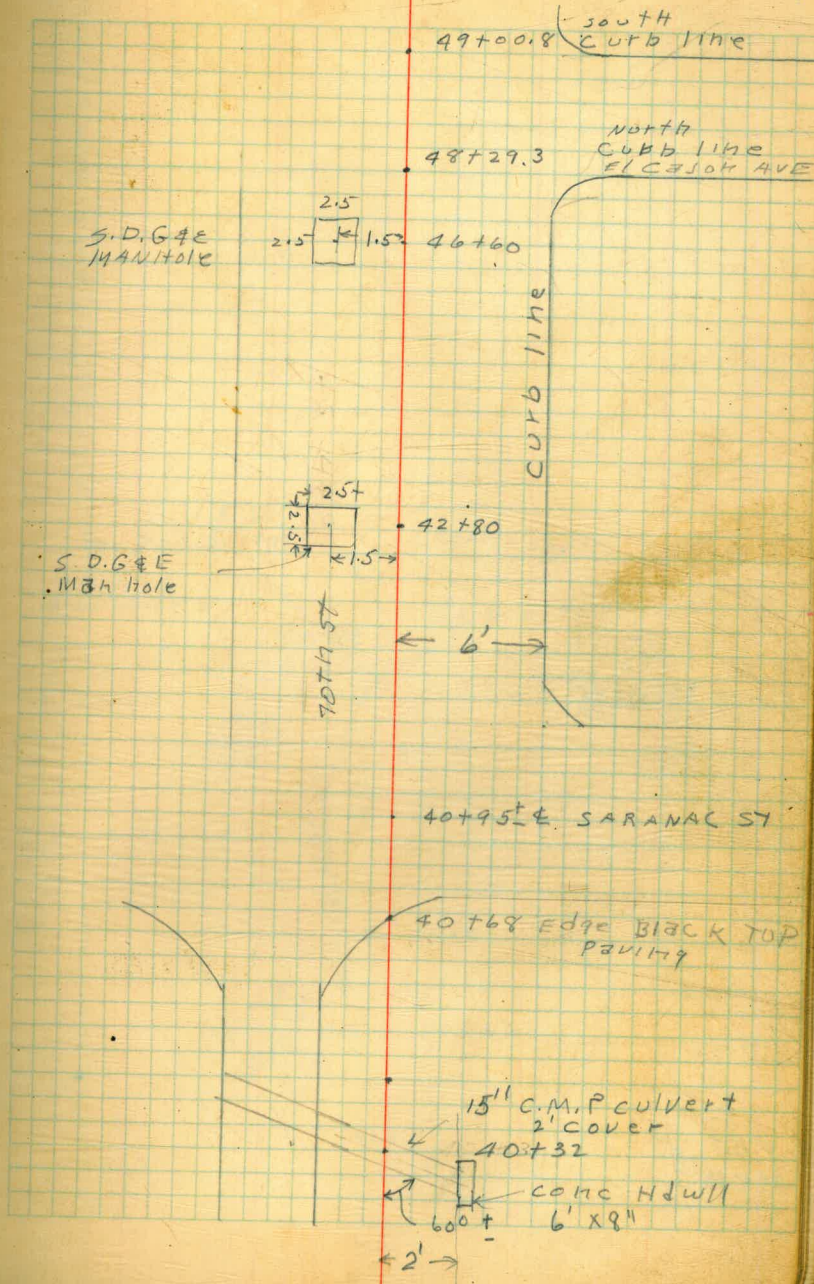 south
49+00.8 Curb line
North
48+29.3 Curb line
El Cajon AVE
2.5
S.D.G&E
MANHole
2.5 1.5 46+60
Curb line
2.5±
2.5
42+80
1.5
S.D.G&E
Man hole
70th St
6'
40+95± ℄ SARANAC ST
40+68 Edge Black TOP
Paving
15" C.M.P culvert
2' Cover
40+32
conc Hdwll
60° ± 6' x 8"
2'